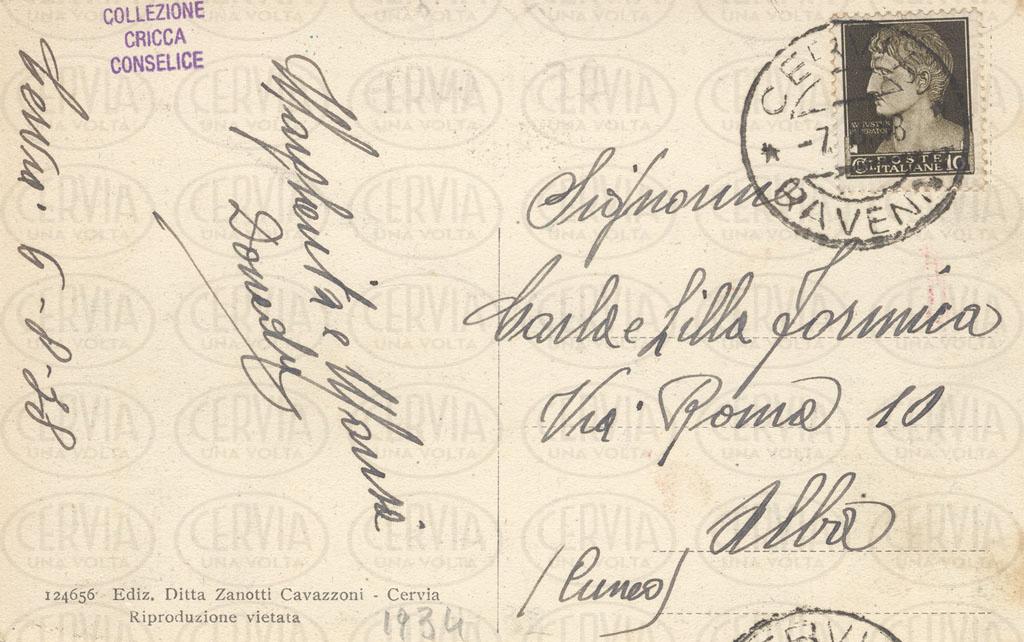 COLLEZIONE
CRICCA
CONSELICE
Cervia. 6-8-38
Margherita e Maria
CERVIA
RAVENNA
AVGVSTVS
IMPERATOR
POSTE
ITALIANE
10
Signorine
Carla e Lilla Formica
Via Roma 10
Alba
(Cuneo)
124656 Ediz. Ditta Zanotti Cavazzoni - Cervia
Riproduzione vietata
1934
CERVIA
UNA VOLTA